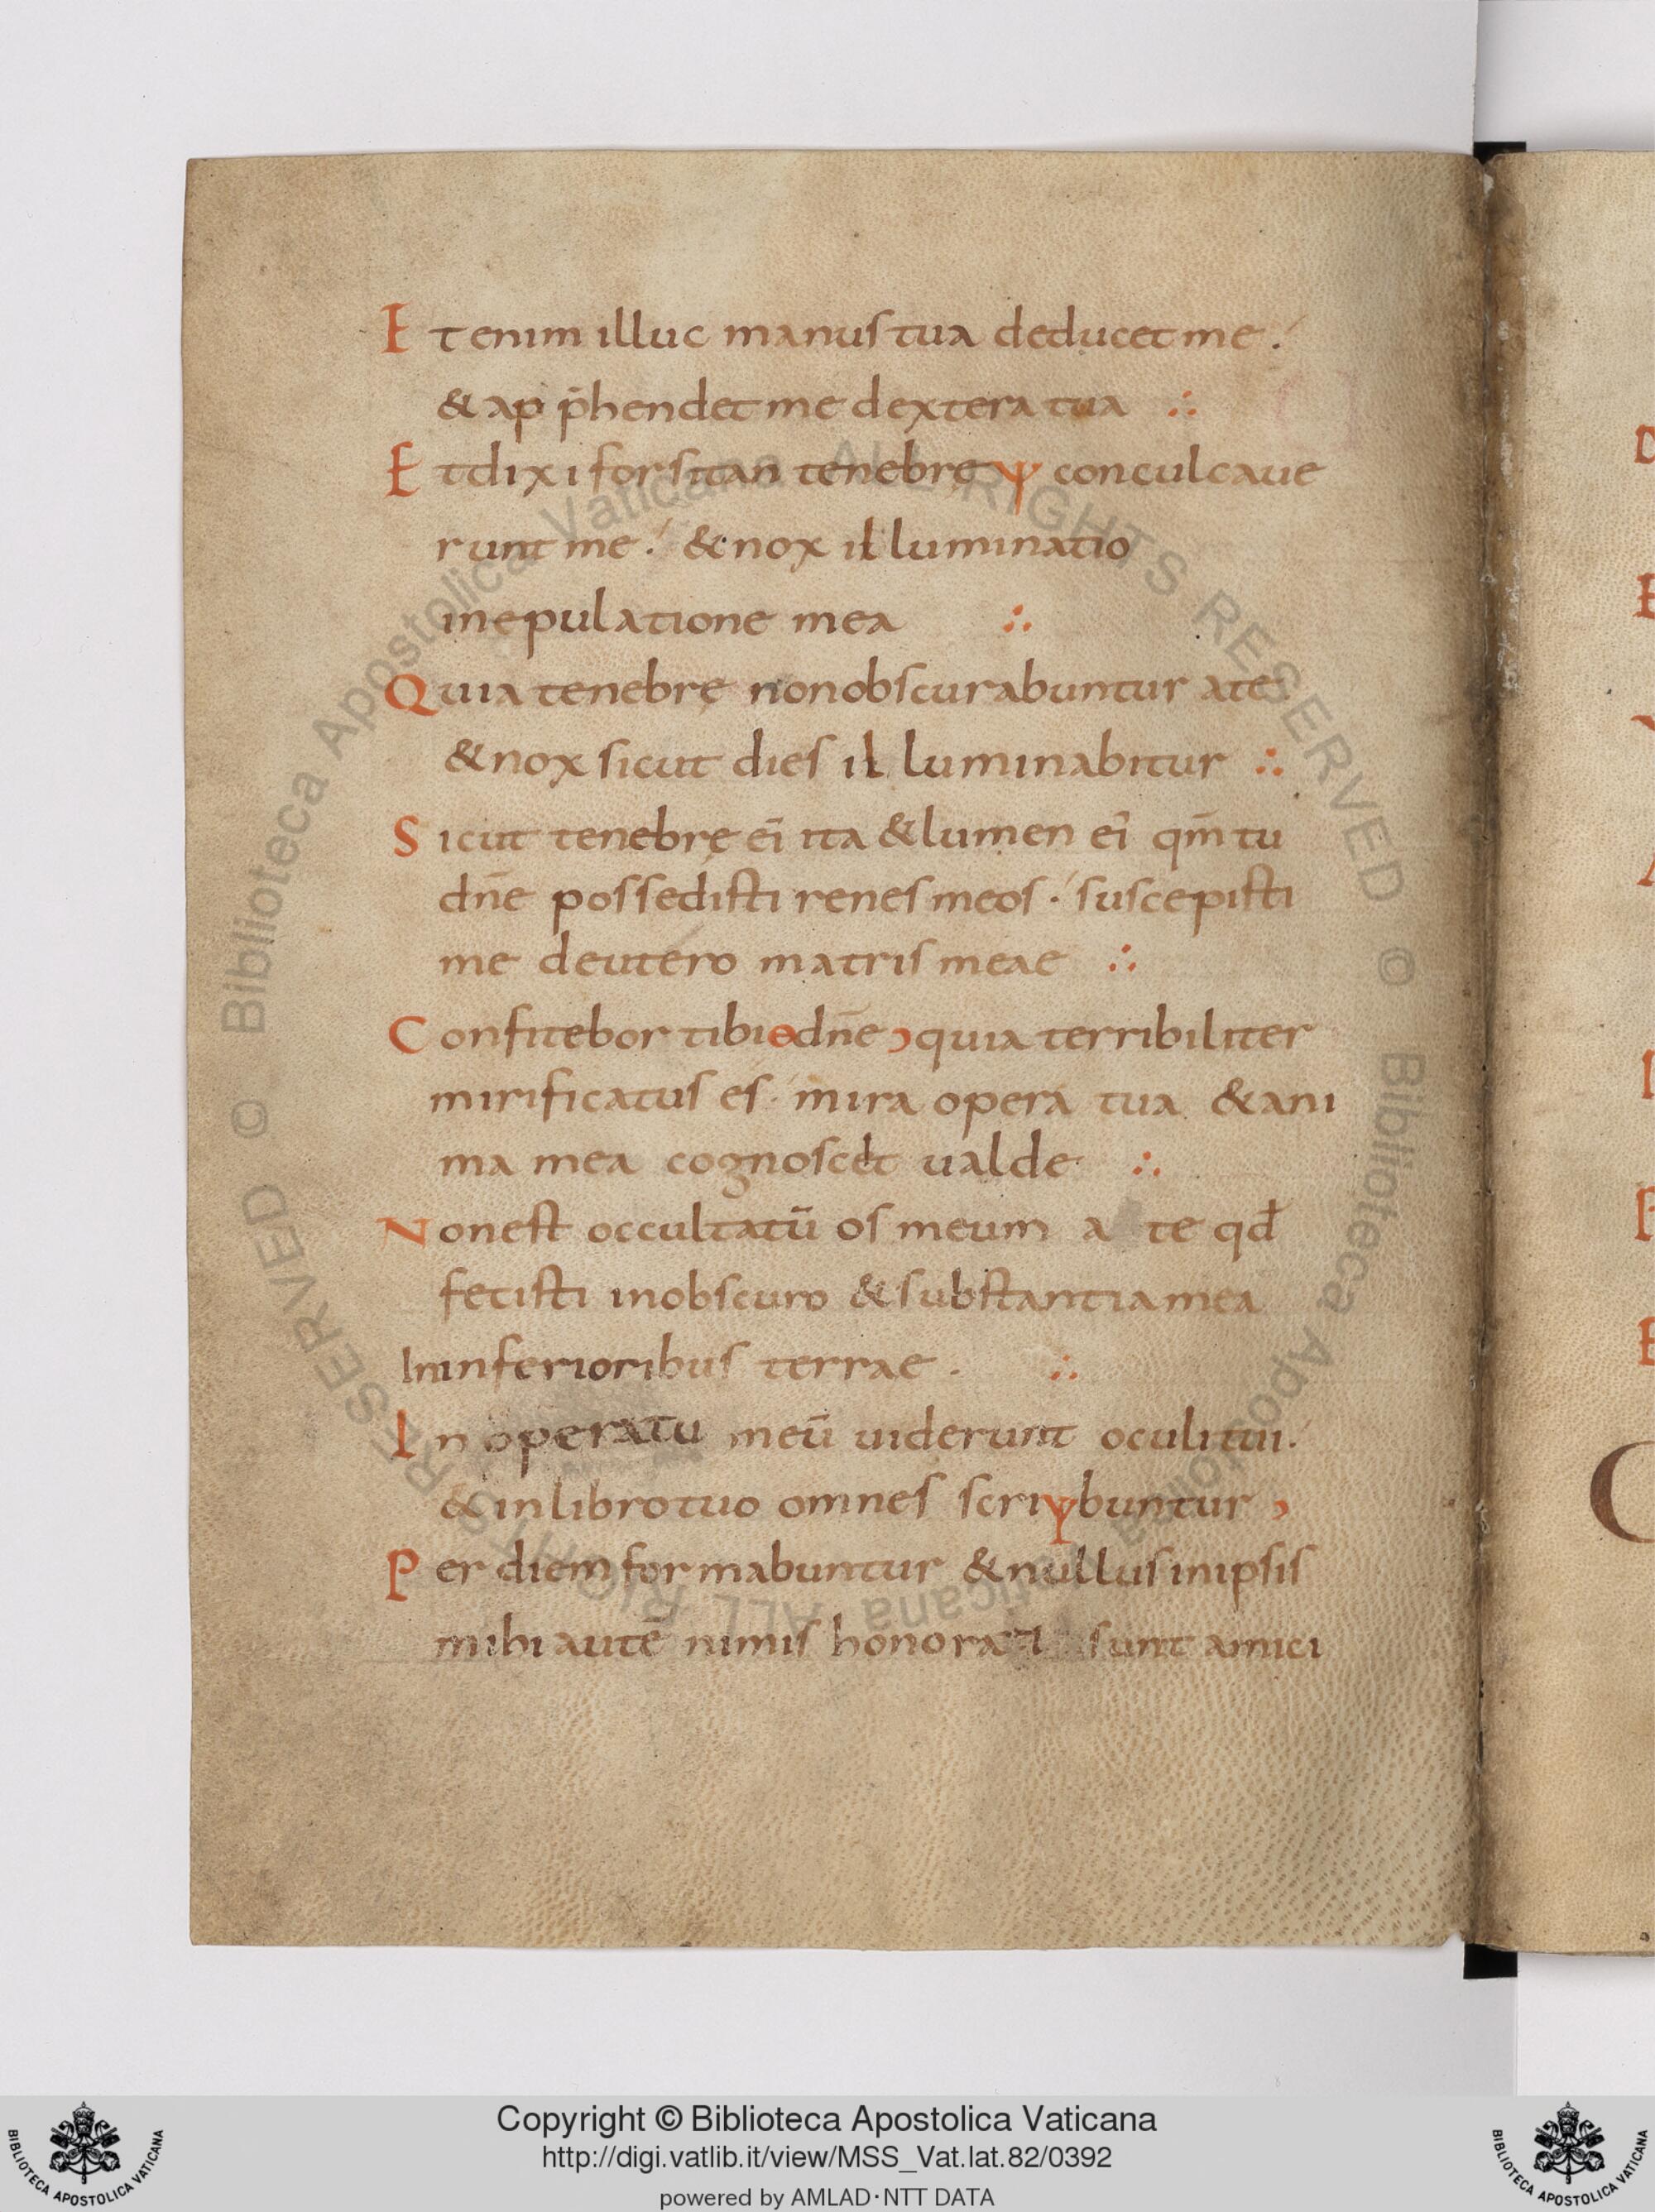 Et enim illuc manus tua deducet me.
& app̄hendet me dextera tua ∴
Et dixi forsitan tenebrę conculcaue
runt me. & nox illuminatio
in epulatione mea ∴
Quia tenebrę non obscurabuntur a te
& nox sicut dies illuminabitur ∴
Sicut tenebrę ei ita & lumen ei qm̄ tu
dn̄e possedisti renes meos. suscepisti
me de utero matris meae ∴
Confitebor tibi dn̄e quia terribiliter
mirificatus es. mira opera tua & ani
ma mea cognoscet ualde ∴
Non est occultatū os meum a te qd̄
fecisti in obscuro & substantia mea
In inferioribus terrae. ∴
In operatu meū uiderunt oculi tui.
& in libro tuo omnes scribuntur
Per diem formabuntur & nullus in ipsis
mihi autē nimis honorati sunt amici
© Biblioteca Apostolica Vaticana ALL RIGHTS RESERVED © Biblioteca Apostolica Vaticana ALL RIGHTS RESERVED
Copyright © Biblioteca Apostolica Vaticana
http://digi.vatlib.it/view/MSS_Vat.lat.82/0392
powered by AMLAD·NTT DATA
BIBLIOTECA APOSTOLICA VATICANA
BIBLIOTECA APOSTOLICA VATICANA